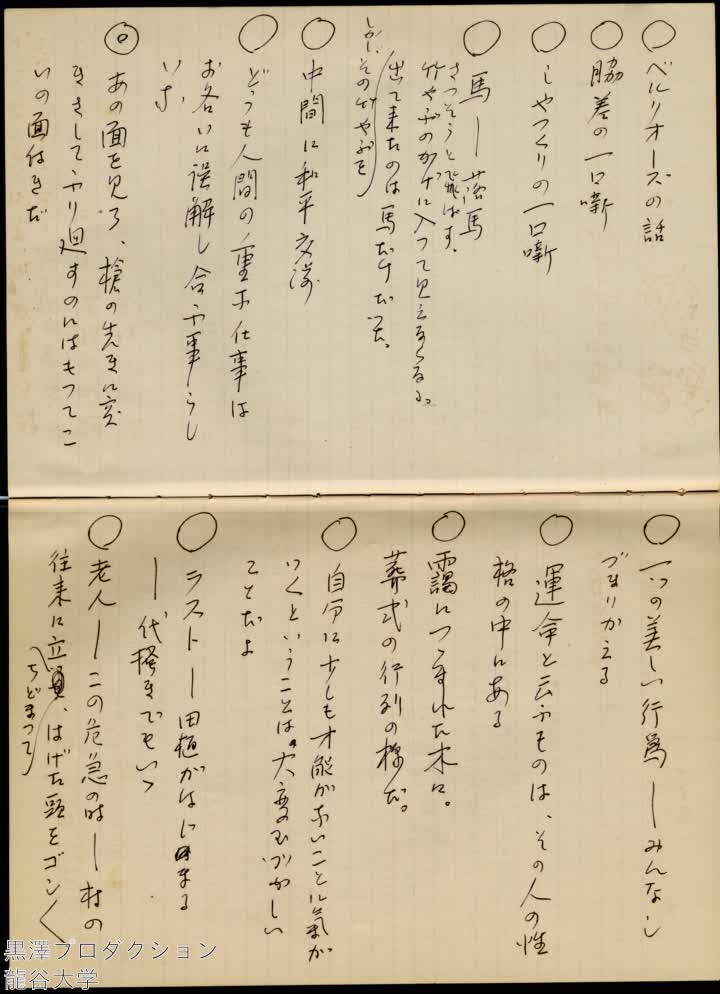 ◯ ベルリオーズの話
◯ 脇差の一口噺
◯ しやつくりの一口噺
◯ 馬―落馬
さつそうと飛ばす、
竹やぶのかげに入つて見えなくなる。
しかし、その竹やぶを
出て来たのは馬だけだつた。
◯ 中間に和平交渉
◯ どうも人間の一重な仕事は
お各いに誤解し合ふ事らし
いな
◎ あの面を見ろ、槍の先きに突
きさしてふり廻すのにはもつてこ
いの面付きだ
◯ 一つの美しい行爲―みんなし
づまりかえる
◯ 運命と云ふものは、その人の性
格の中にある
◯ 靄につゝまれた木々。
葬式の行列の様だ。
◯ 自分に少しも才能がないことに氣が
つくということは、大変むづかしい
ことだよ
◯ ラスト―田植がはじまる
―代掻きでもいゝ
◯ 老人―この危急の時―村の
往来に立
ちどまつて
、はげた頭をゴン〱
黒澤プロダクション
龍谷大学